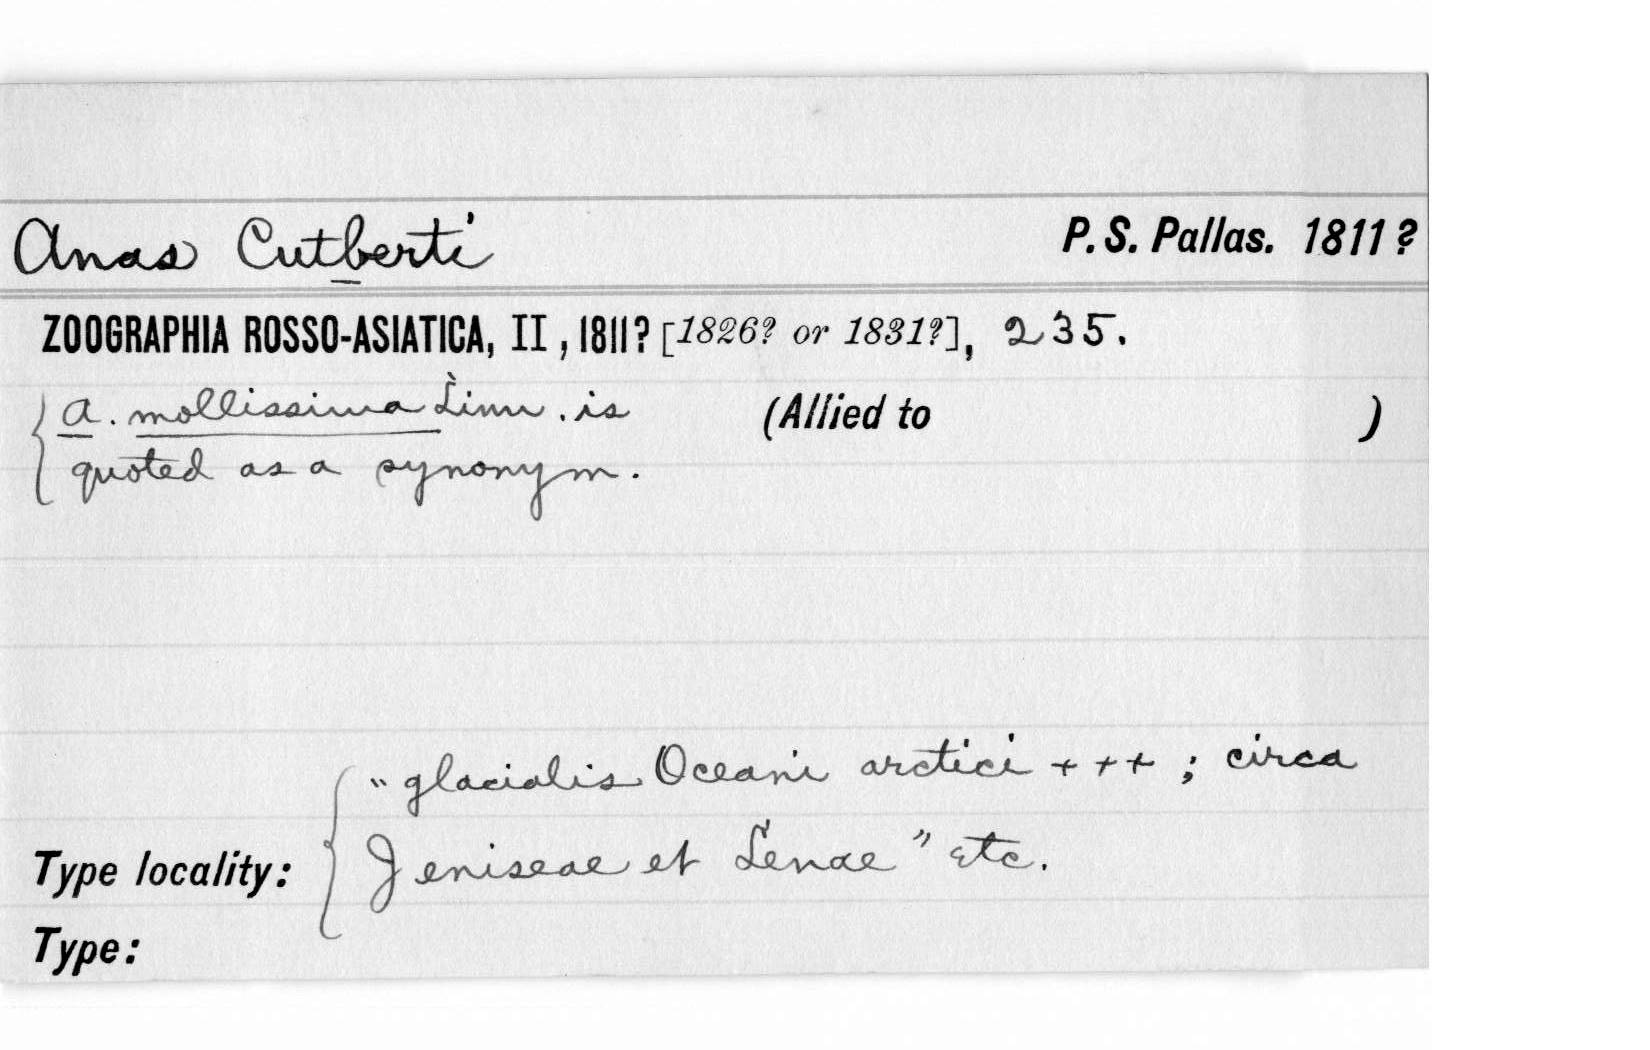 Anas Cutberti P. S. Pallas. 1811?
ZOOGRAPHIA ROSSO-ASIATICA, II, 1811? [1826? or 1831?], 235.
A. mollissima Linn. is (Allied to )
quoted as a synonym.
"glacialis Oceani arctici + + + ; circa
Type locality: Jeniseae et Lenae" etc.
Type: